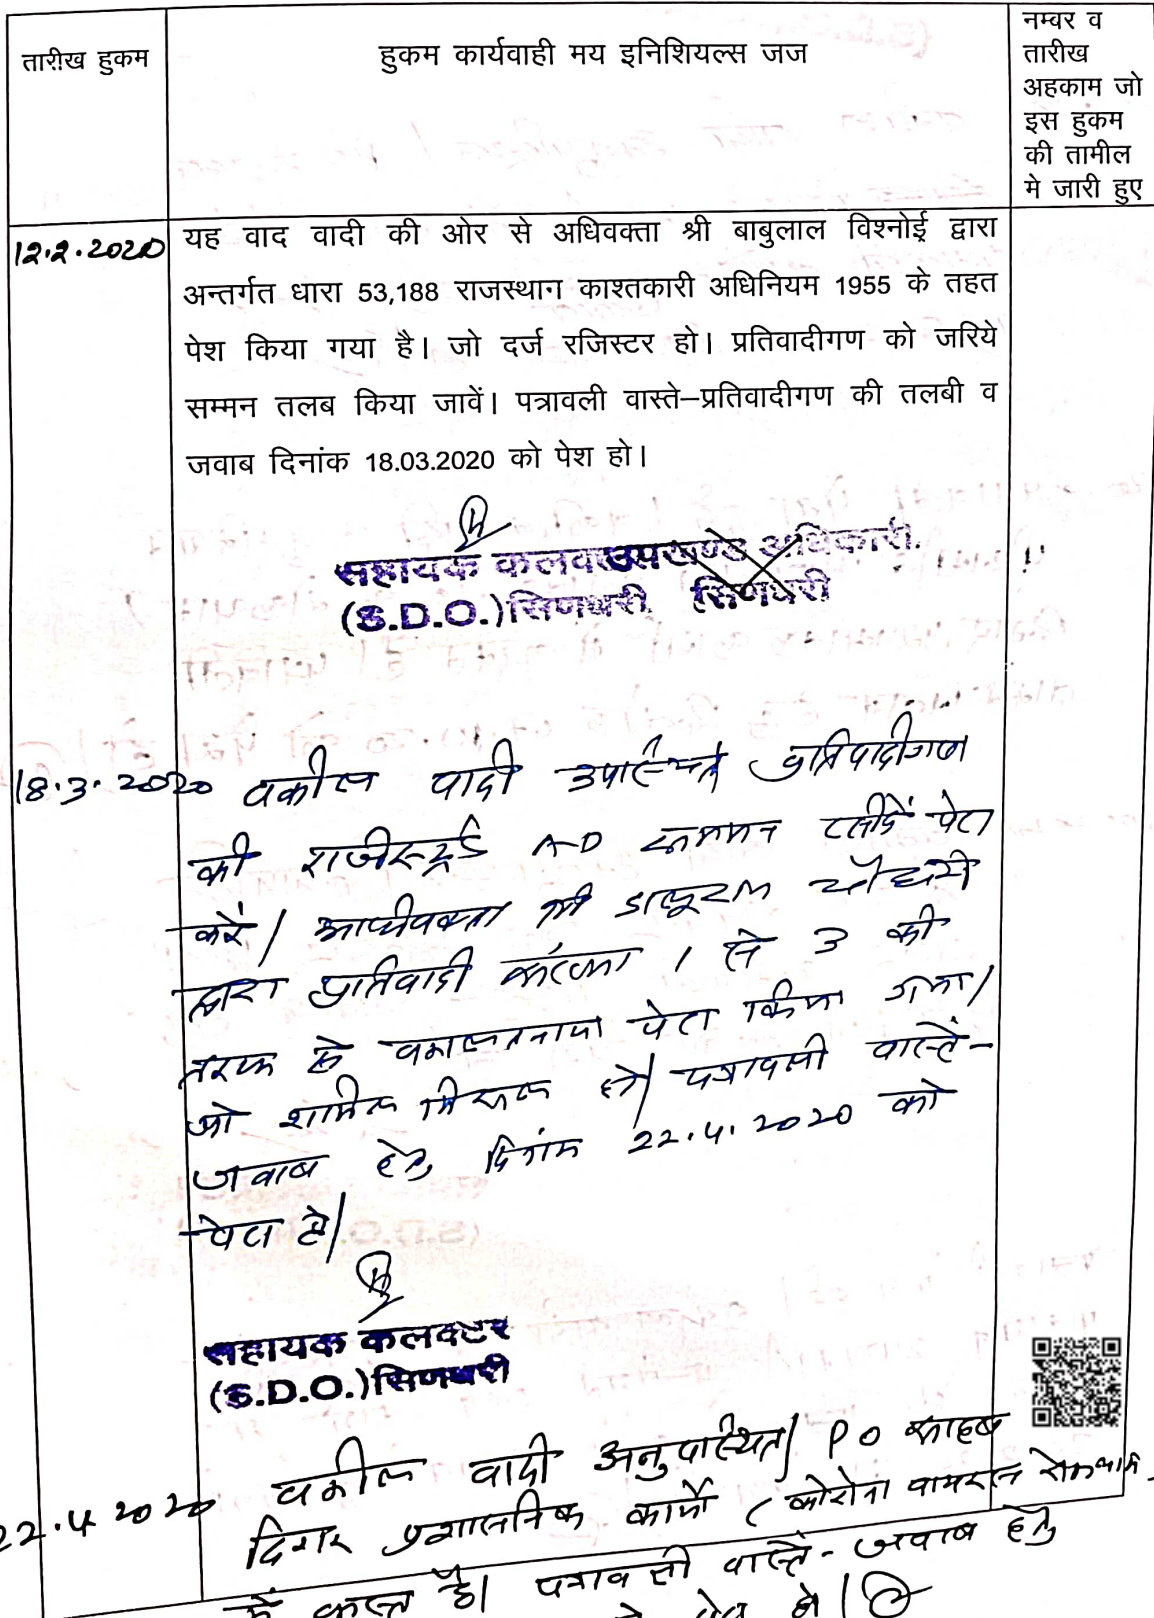 तारीख हुकम
हुकम कार्यवाही मय इनिशियल्स जज
नम्वर व
तारीख
अहकाम जो
इस हुकम
की तामील
मे जारी हुए
12.2.2020
यह वाद वादी की ओर से अधिवक्ता श्री बाबुलाल विश्नोई द्वारा
अन्तर्गत धारा 53,188 राजस्थान काश्तकारी अधिनियम 1955 के तहत
पेश किया गया है। जो दर्ज रजिस्टर हो। प्रतिवादीगण को जरिये
सम्मन तलब किया जावें। पत्रावली वास्ते–प्रतिवादीगण की तलबी व
जवाब दिनांक 18.03.2020 को पेश हो।
सहायक कलक्टर उपखण्ड अधिकारी.
(S.D.O.) सिणधरी सिणधरी
18.3.2020 वकील वादी उपस्थित प्रतिवादीगण
की रजीस्टर्ड AD सम्मन रसीदें पेश
करें। अधिवक्ता श्री डालूराम चौधरी
द्वारा प्रतिवादी संख्या 1 से 3 की
तरफ से वकालतनामा पेश किया गया।
जो शामिल मिसल हो। पत्रावली वास्ते-
जवाब हेतु दिनांक 22.4.2020 को
पेश हो।
सहायक कलक्टर
(S.D.O.) सिणधरी
22.4.2020 वकील वादी अनुपस्थित। PO साहब
दिगर प्रशासनिक कार्यो (कोरोना वायरस रोकथाम
में व्यस्त है। पत्रावली वास्ते- जवाब हेतु
पेश हो।